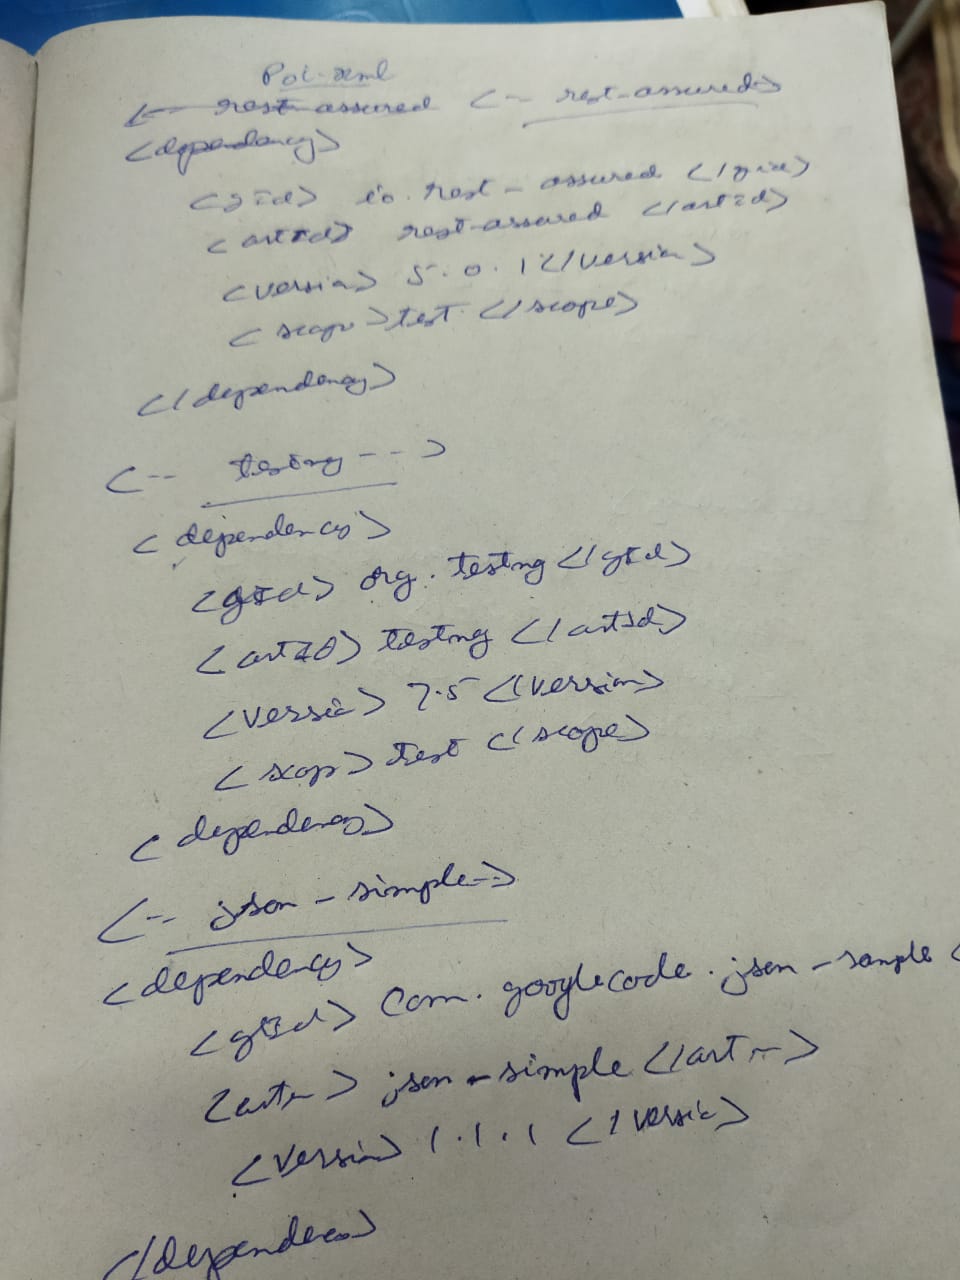 Poi-xml
<-- rest-assured <-- rest-assured>
<dependency>
<gId> io.rest-assured </gid>
<artId> rest-assured </artId>
<version> 5.0.1 </version>
<scope> test </scope>
</dependency>
<-- testng -->
<dependency>
<gId> org.testng </gId>
<artId> testng </artId>
<version> 7.5 </version>
<scop> test </scope>
<dependency>
<-- json-simple-->
<dependency>
<gId> com.googlecode.json-simple <
<art~> json-simple </art~>
<version> 1.1.1 </version>
</dependency>